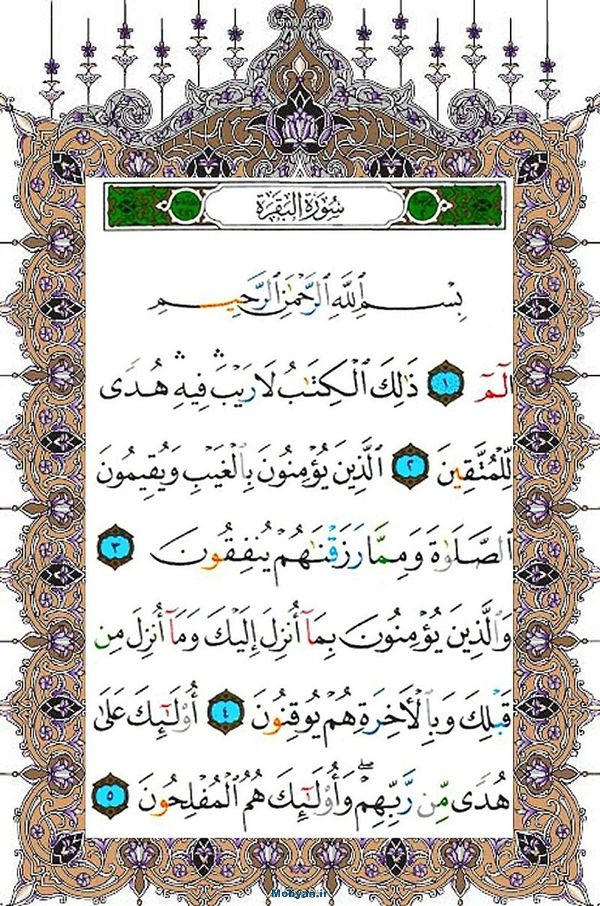 سُورَةُ الْبَقَرَةِ
بِسْمِ ٱللَّهِ ٱلرَّحْمَٰنِ ٱلرَّحِيمِ
الٓمٓ ١ ذَٰلِكَ ٱلْكِتَٰبُ لَا رَيْبَ ۛ فِيهِ ۛ هُدًى
لِّلْمُتَّقِينَ ٢ ٱلَّذِينَ يُؤْمِنُونَ بِٱلْغَيْبِ وَيُقِيمُونَ
ٱلصَّلَوٰةَ وَمِمَّا رَزَقْنَٰهُمْ يُنفِقُونَ ٣
وَٱلَّذِينَ يُؤْمِنُونَ بِمَآ أُنزِلَ إِلَيْكَ وَمَآ أُنزِلَ مِن
قَبْلِكَ وَبِٱلْأَخِرَةِ هُمْ يُوقِنُونَ ٤ أُوْلَٰٓئِكَ عَلَىٰ
هُدًى مِّن رَّبِّهِمْ ۖ وَأُوْلَٰٓئِكَ هُمُ ٱلْمُفْلِحُونَ ٥
Mobyan.ir